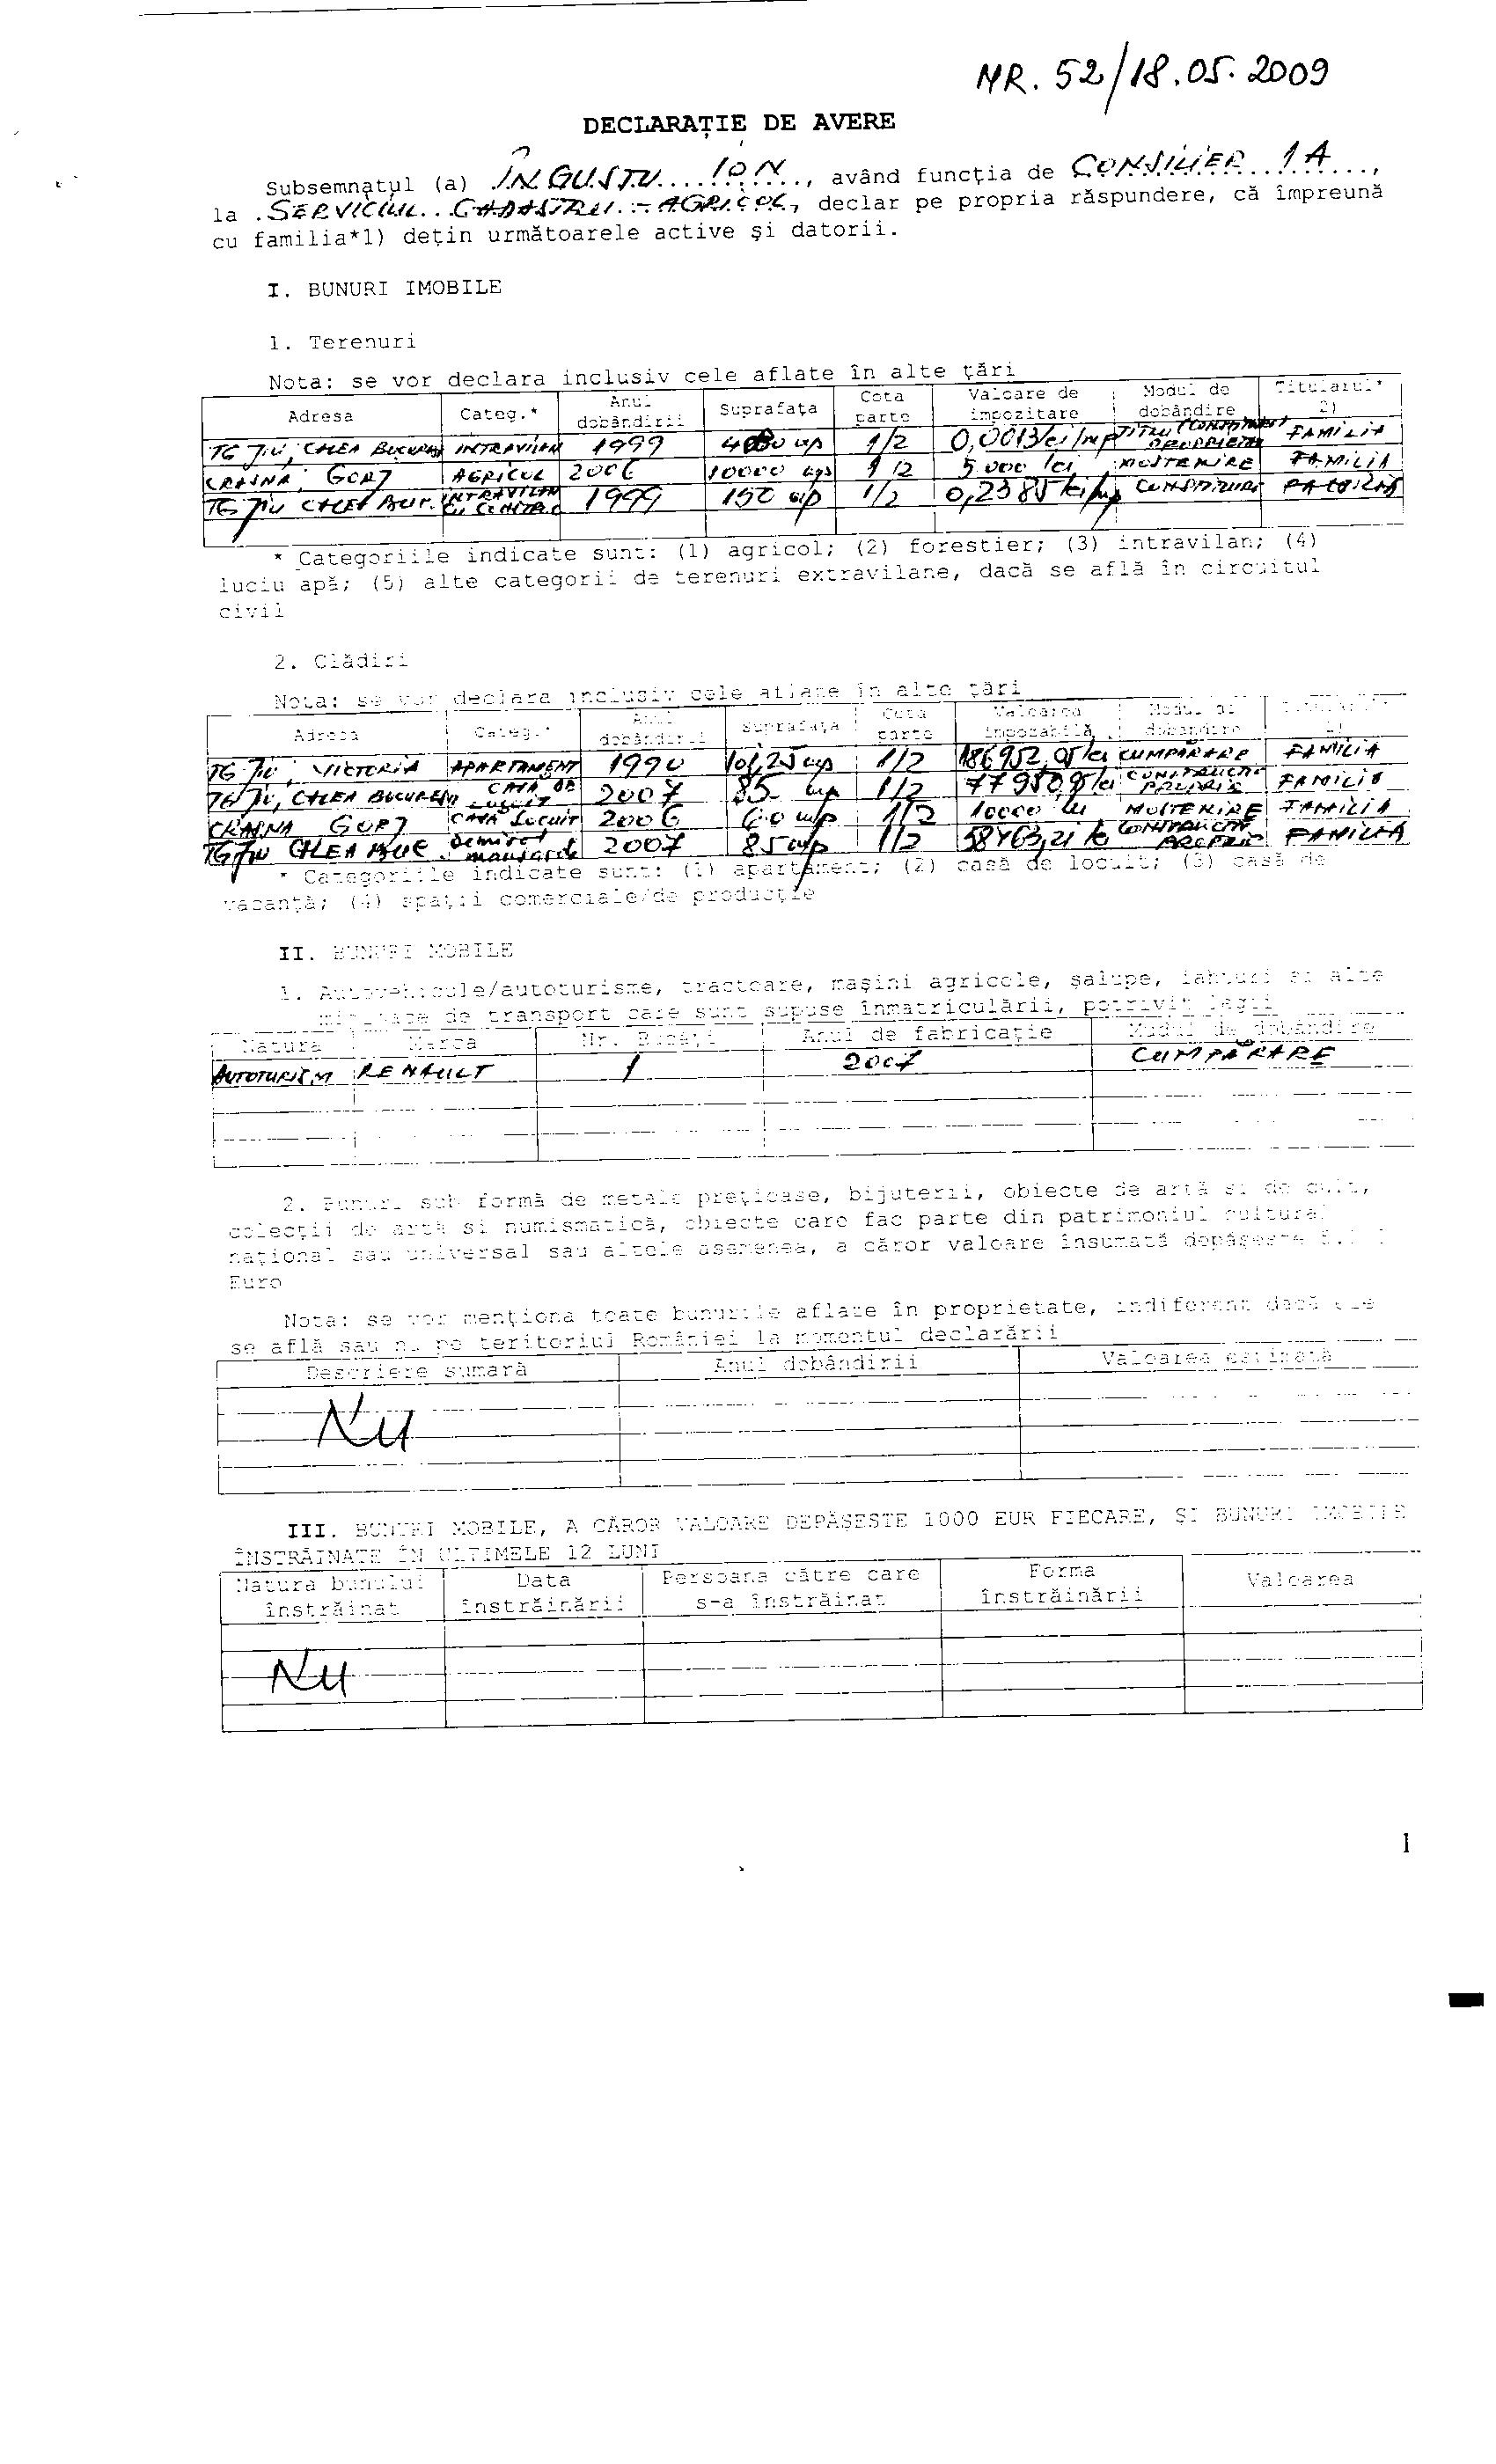 NR. 52/18.05.2009
DECLARAŢIE DE AVERE
Subsemnatul (a) ÎNGUSTU ION, având funcţia de CONSILIER 1A,
la SERVICIUL CADASTRU - AGRICOL, declar pe propria răspundere, că împreună
cu familia*1) deţin următoarele active şi datorii.
I. BUNURI IMOBILE
1. Terenuri
Nota: se vor declara inclusiv cele aflate în alte ţări
Adresa Categ.* Anul dobândirii Suprafaţa Cota parte Valoare de impozitare Modul de dobândire Titularul* 2)
TG JIU, CALEA BUCUREŞTI INTRAVILAN 1999 mp 1/2 0,0013 lei/mp TITLU PROPRIETATE FAMILIA
CRASNA, GORJ AGRICOL 2006 10000 mp 1/2 5000 lei MOSTENIRE FAMILIA
TG JIU CALEA BUC. INTRAVILAN 1999 150 mp 1/2 0,2385 lei/mp FAMILIA
* Categoriile indicate sunt: (1) agricol; (2) forestier; (3) intravilan; (4)
luciu apă; (5) alte categorii de terenuri extravilane, dacă se află în circuitul
civil
2. Clădiri
Nota: se vor declara inclusiv cele aflate în alte ţări
Adresa Categ.* Anul dobândirii Suprafaţa Cota parte Valoarea impozabilă Modul de dobândire
TG JIU, VICTORIA APARTAMENT 1990 101,25 mp 1/2 186952,05 lei CUMPĂRARE FAMILIA
TG JIU, CALEA BUCUREŞTI CASĂ DE LOCUIT 2007 85 mp 1/2 lei CONSTRUCTIE PROPRIE FAMILIA
CRASNA GORJ CASĂ LOCUIT 2006 60 mp 1/2 10000 lei MOSTENIRE FAMILIA
TG JIU CALEA BUC. Demisol mansardă 2007 85 mp 1/2 58463,21 lei CONSTRUCTIE PROPRIE FAMILIA
* Categoriile indicate sunt: (1) apartament; (2) casă de locuit; (3) casă de
vacanţă; (4) spaţii comerciale/de producţie
II. BUNURI MOBILE
1. Autovehicule/autoturisme, tractoare, maşini agricole, şalupe, iahturi si alte
mijloace de transport care sunt supuse înmatriculării, potrivit legii
Natura Marca Nr. Bucăţi Anul de fabricaţie Modul de dobândire
AUTOTURISM RENAULT 1 2007 CUMPĂRARE
2. Bunuri sub formă de metale preţioase, bijuterii, obiecte de artă si de cult,
colecţii de artă si numismatică, obiecte care fac parte din patrimoniul cultural
naţional sau universal sau altele asemenea, a căror valoare însumată depăşeste
Euro
Nota: se vor menţiona toate bunurile aflate în proprietate, indiferent dacă ele
se află sau nu pe teritoriul României la momentul declarării
Descriere sumară Anul dobândirii Valoarea estimată
NU
III. BUNURI MOBILE, A CĂROR VALOARE DEPĂŞESTE 1000 EUR FIECARE, ŞI BUNURI IMOBILE
ÎNSTRĂINATE ÎN ULTIMELE 12 LUNI
Natura bunului înstrăinat Data înstrăinării Persoana către care s-a înstrăinat Forma înstrăinării Valoarea
NU
1